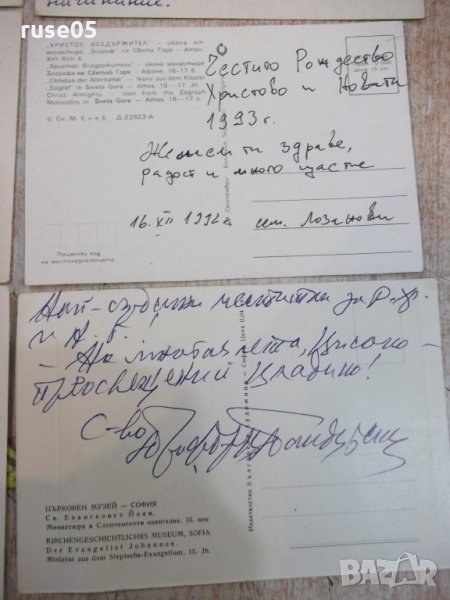 ruse05
начинание.
"ХРИСТОС ВСЕДЪРЖИТЕЛ" — икона от
манастира "Зограф" на Света Гора — Атон.
XVI-XVII в.
"Христос Вседержитель" — икона монастыря
Зографа на Святой Горе — Афоне. 16—17 в.
"Christus der Allerhalter" — Ikone aus dem Kloster
"Sograf" in Sweta Gora — Athos. 16. — 17. Jh.
Christ Almighty — icon from the Zograph
Monastery in Sveta Gora — Athos, 16—17 c.
© Сн. М. Енев. Д-23923-А
Честито Рождество
Христово и Новата
1993 г.
Желаем ти здраве,
радост и много щастие
16.XII 1992 г.
сем. Лозанови
Пощенски код
на местоназначението
Най-сърдечни честитки за Р.Х.
и Н.Г.!
- На многая лета, Високо-
преосвещений Владико!
С-во
ЦЪРКОВЕН МУЗЕЙ — СОФИЯ
Св. Евангелист Йоан.
Миниатюра в Слепченското евангелие. 15. век
KIRCHENGESCHICHTLICHES MUSEUM, SOFIA
Der Evangelist Johannes.
Miniatur aus dem Sleptsche-Evangelium. 15. Jh.
Издателство Български художник — София Цена 0,04
BAZAR